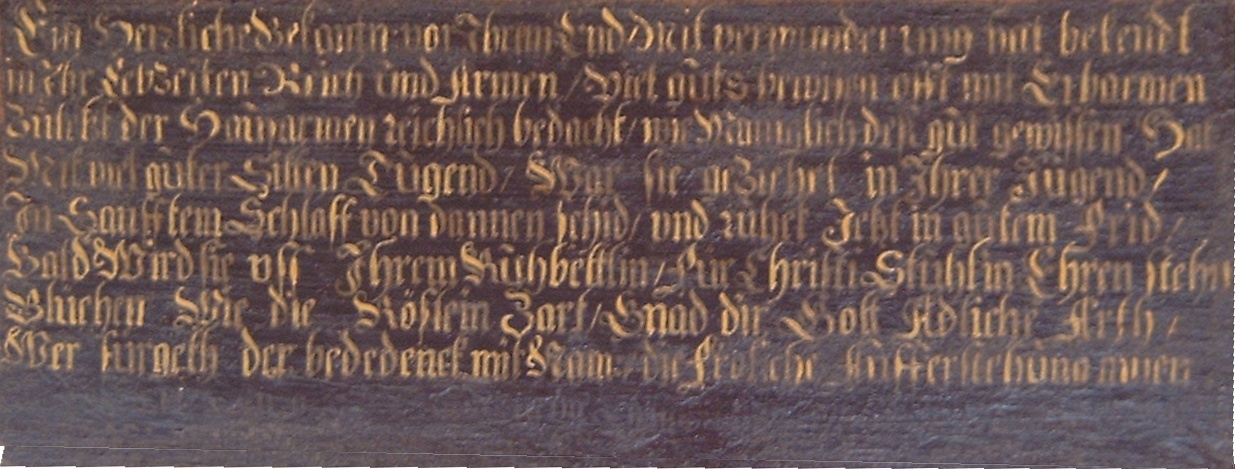 Ein Herzliche Bekantn vor Ihrem End / Mit verwunderung hat bekendt
in Ihr Lebzeiten Reich und Armen / Viel guts bewisen offt mit Erbarmen
Zuletst der Haus armen reichlich bedacht / wie Maniglich deß gut gewissen Hat
Mit viel guter Sitten Tugend / War sie gezieht in Ihrer Jugend /
In Sanfftem Schlaff von dannen schid / und ruhet Jetzt in gutem Frid /
Bald Wird sie uß Ihrem Ruhbettlin / für Christi Stuhl in Ehren stehn
Bluehen Wie die Rößlein Zart / Gnad dir Gott Adliche Arth /
Wer fürgeth der bededenck mit Nam die fröliche Aufferstehung amen